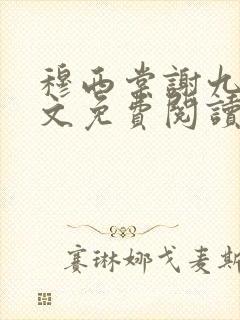 穆西棠謝九
文免費閱讀
賽琳娜戈麦斯